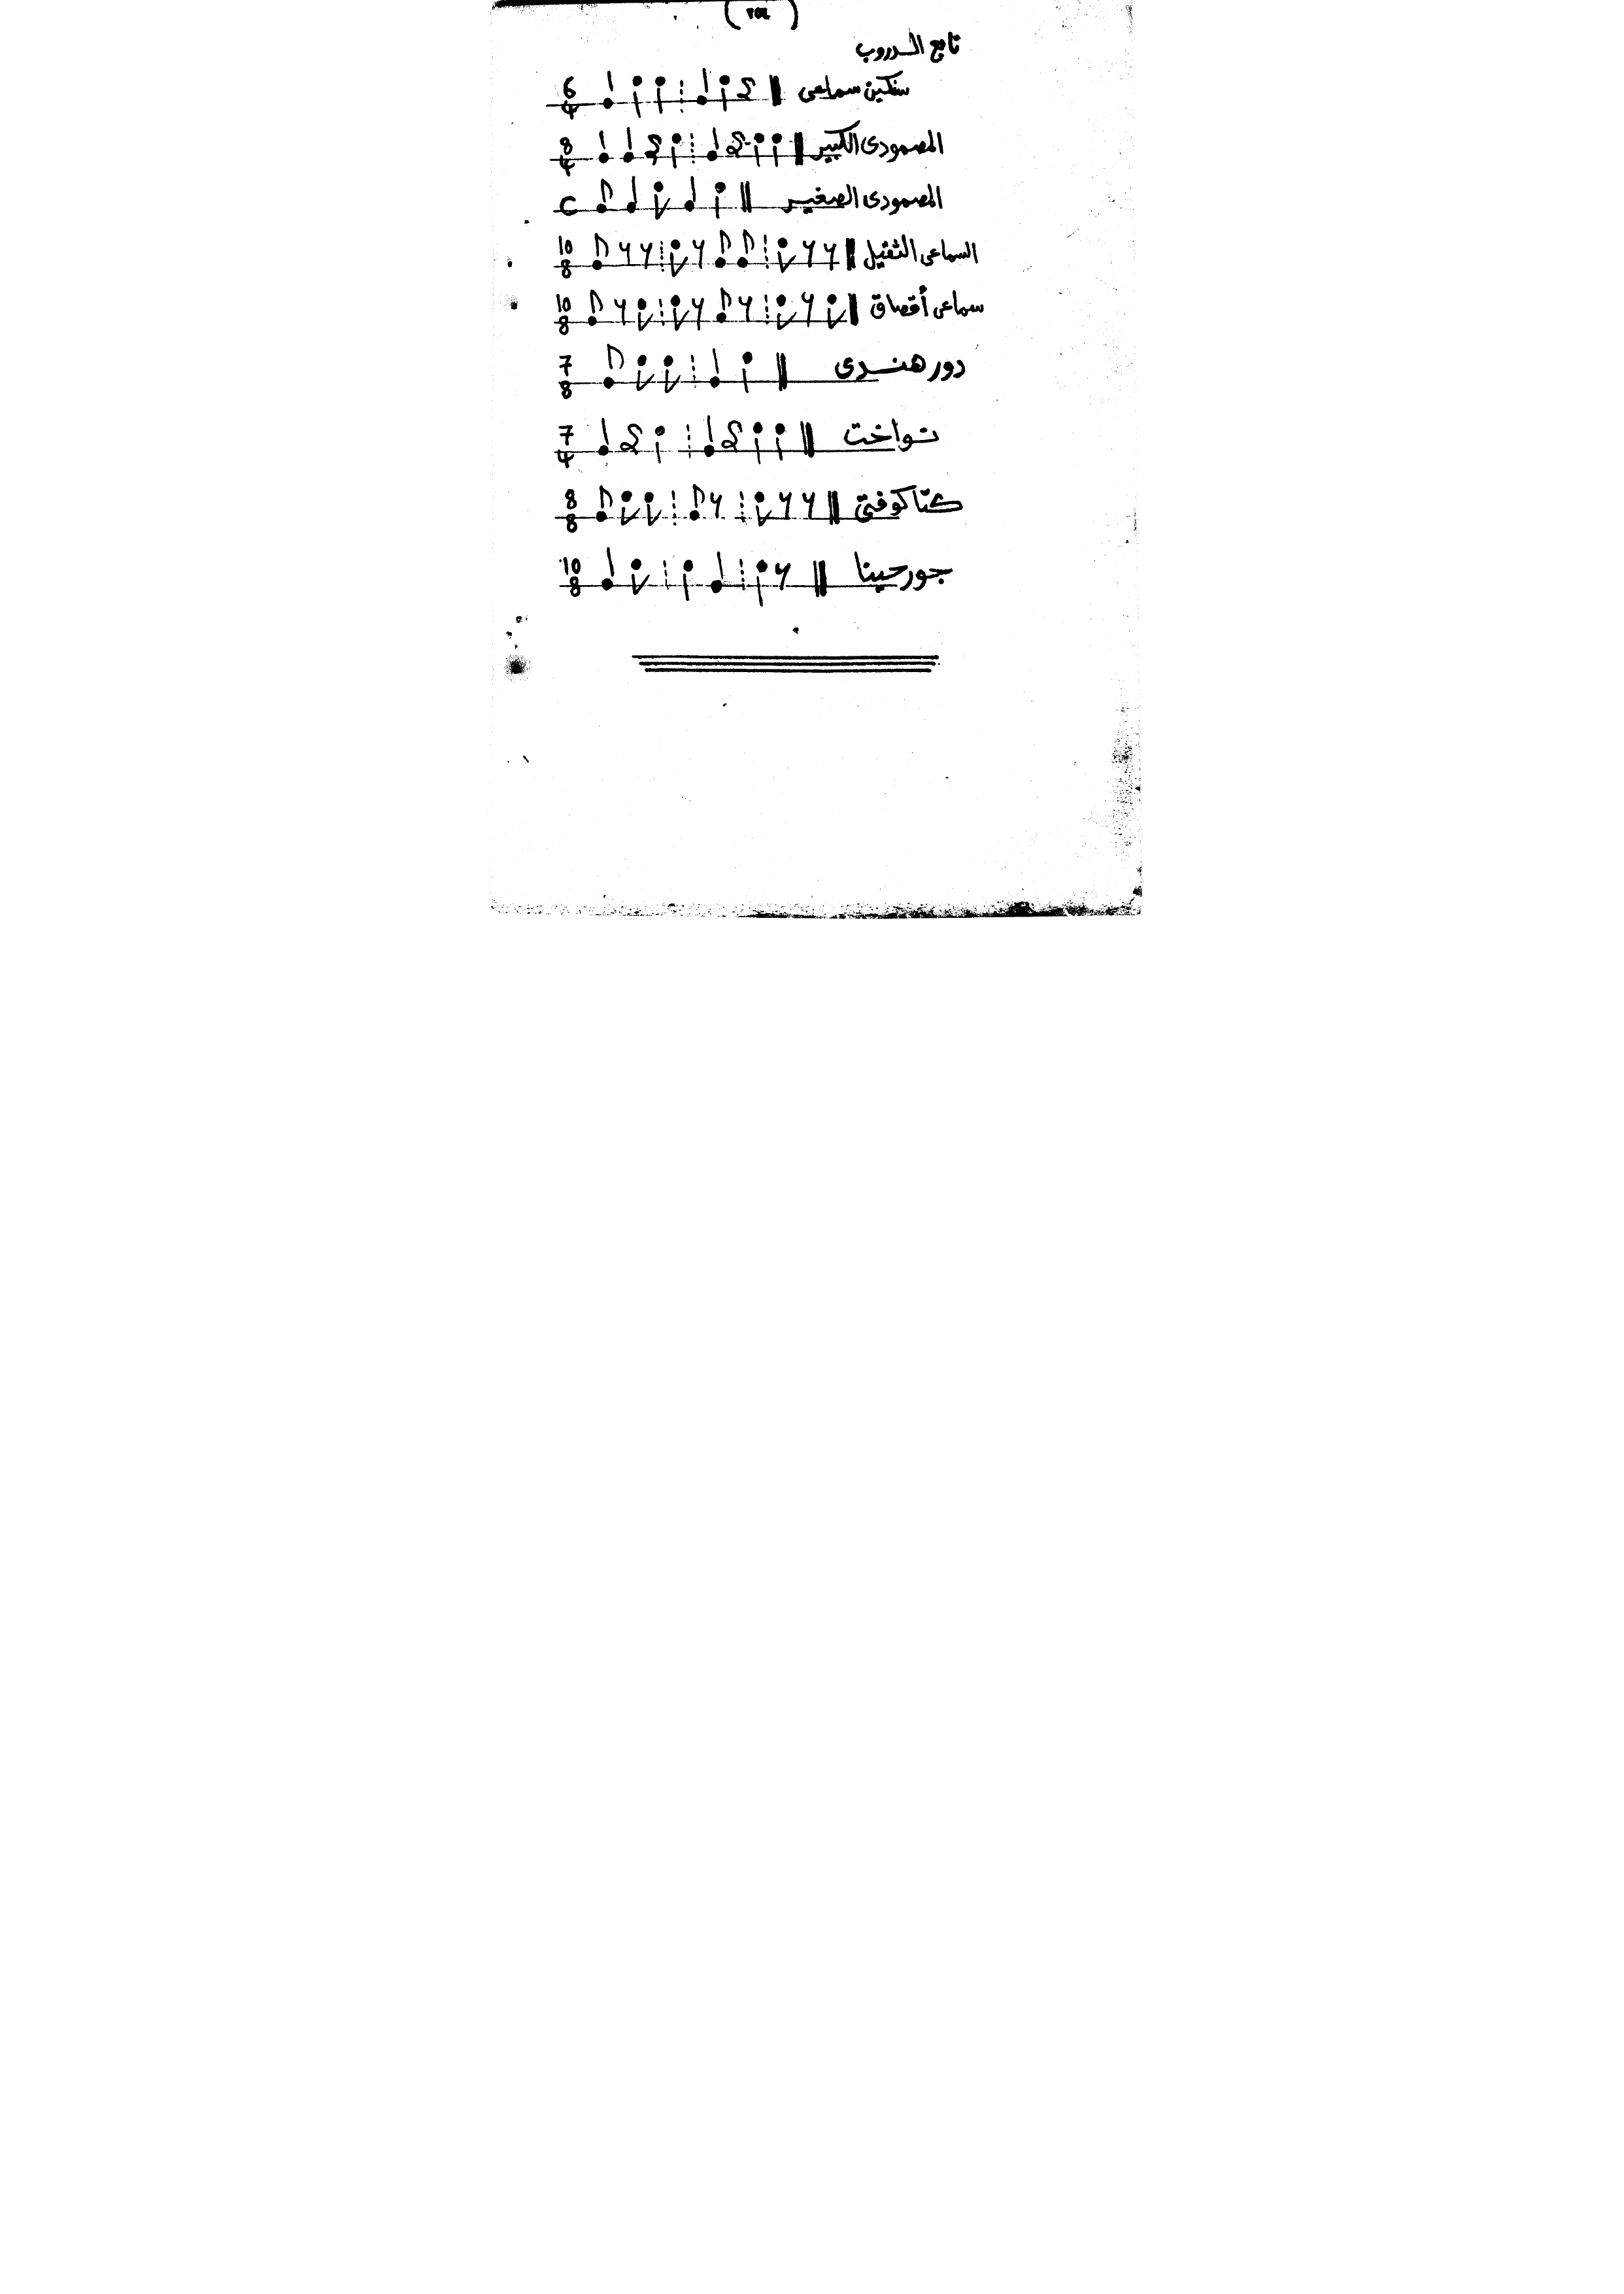 تابع الدروب
6/4 سنكين سماعى
8/4 المصمودى الكبير
C المصمودى الصغير
10/8 السماعى الثقيل
10/8 سماعى أقصاق
7/8 دور هندى
7/4 نواخت
8/8 كتاكوفتى
10/8 جورحينا